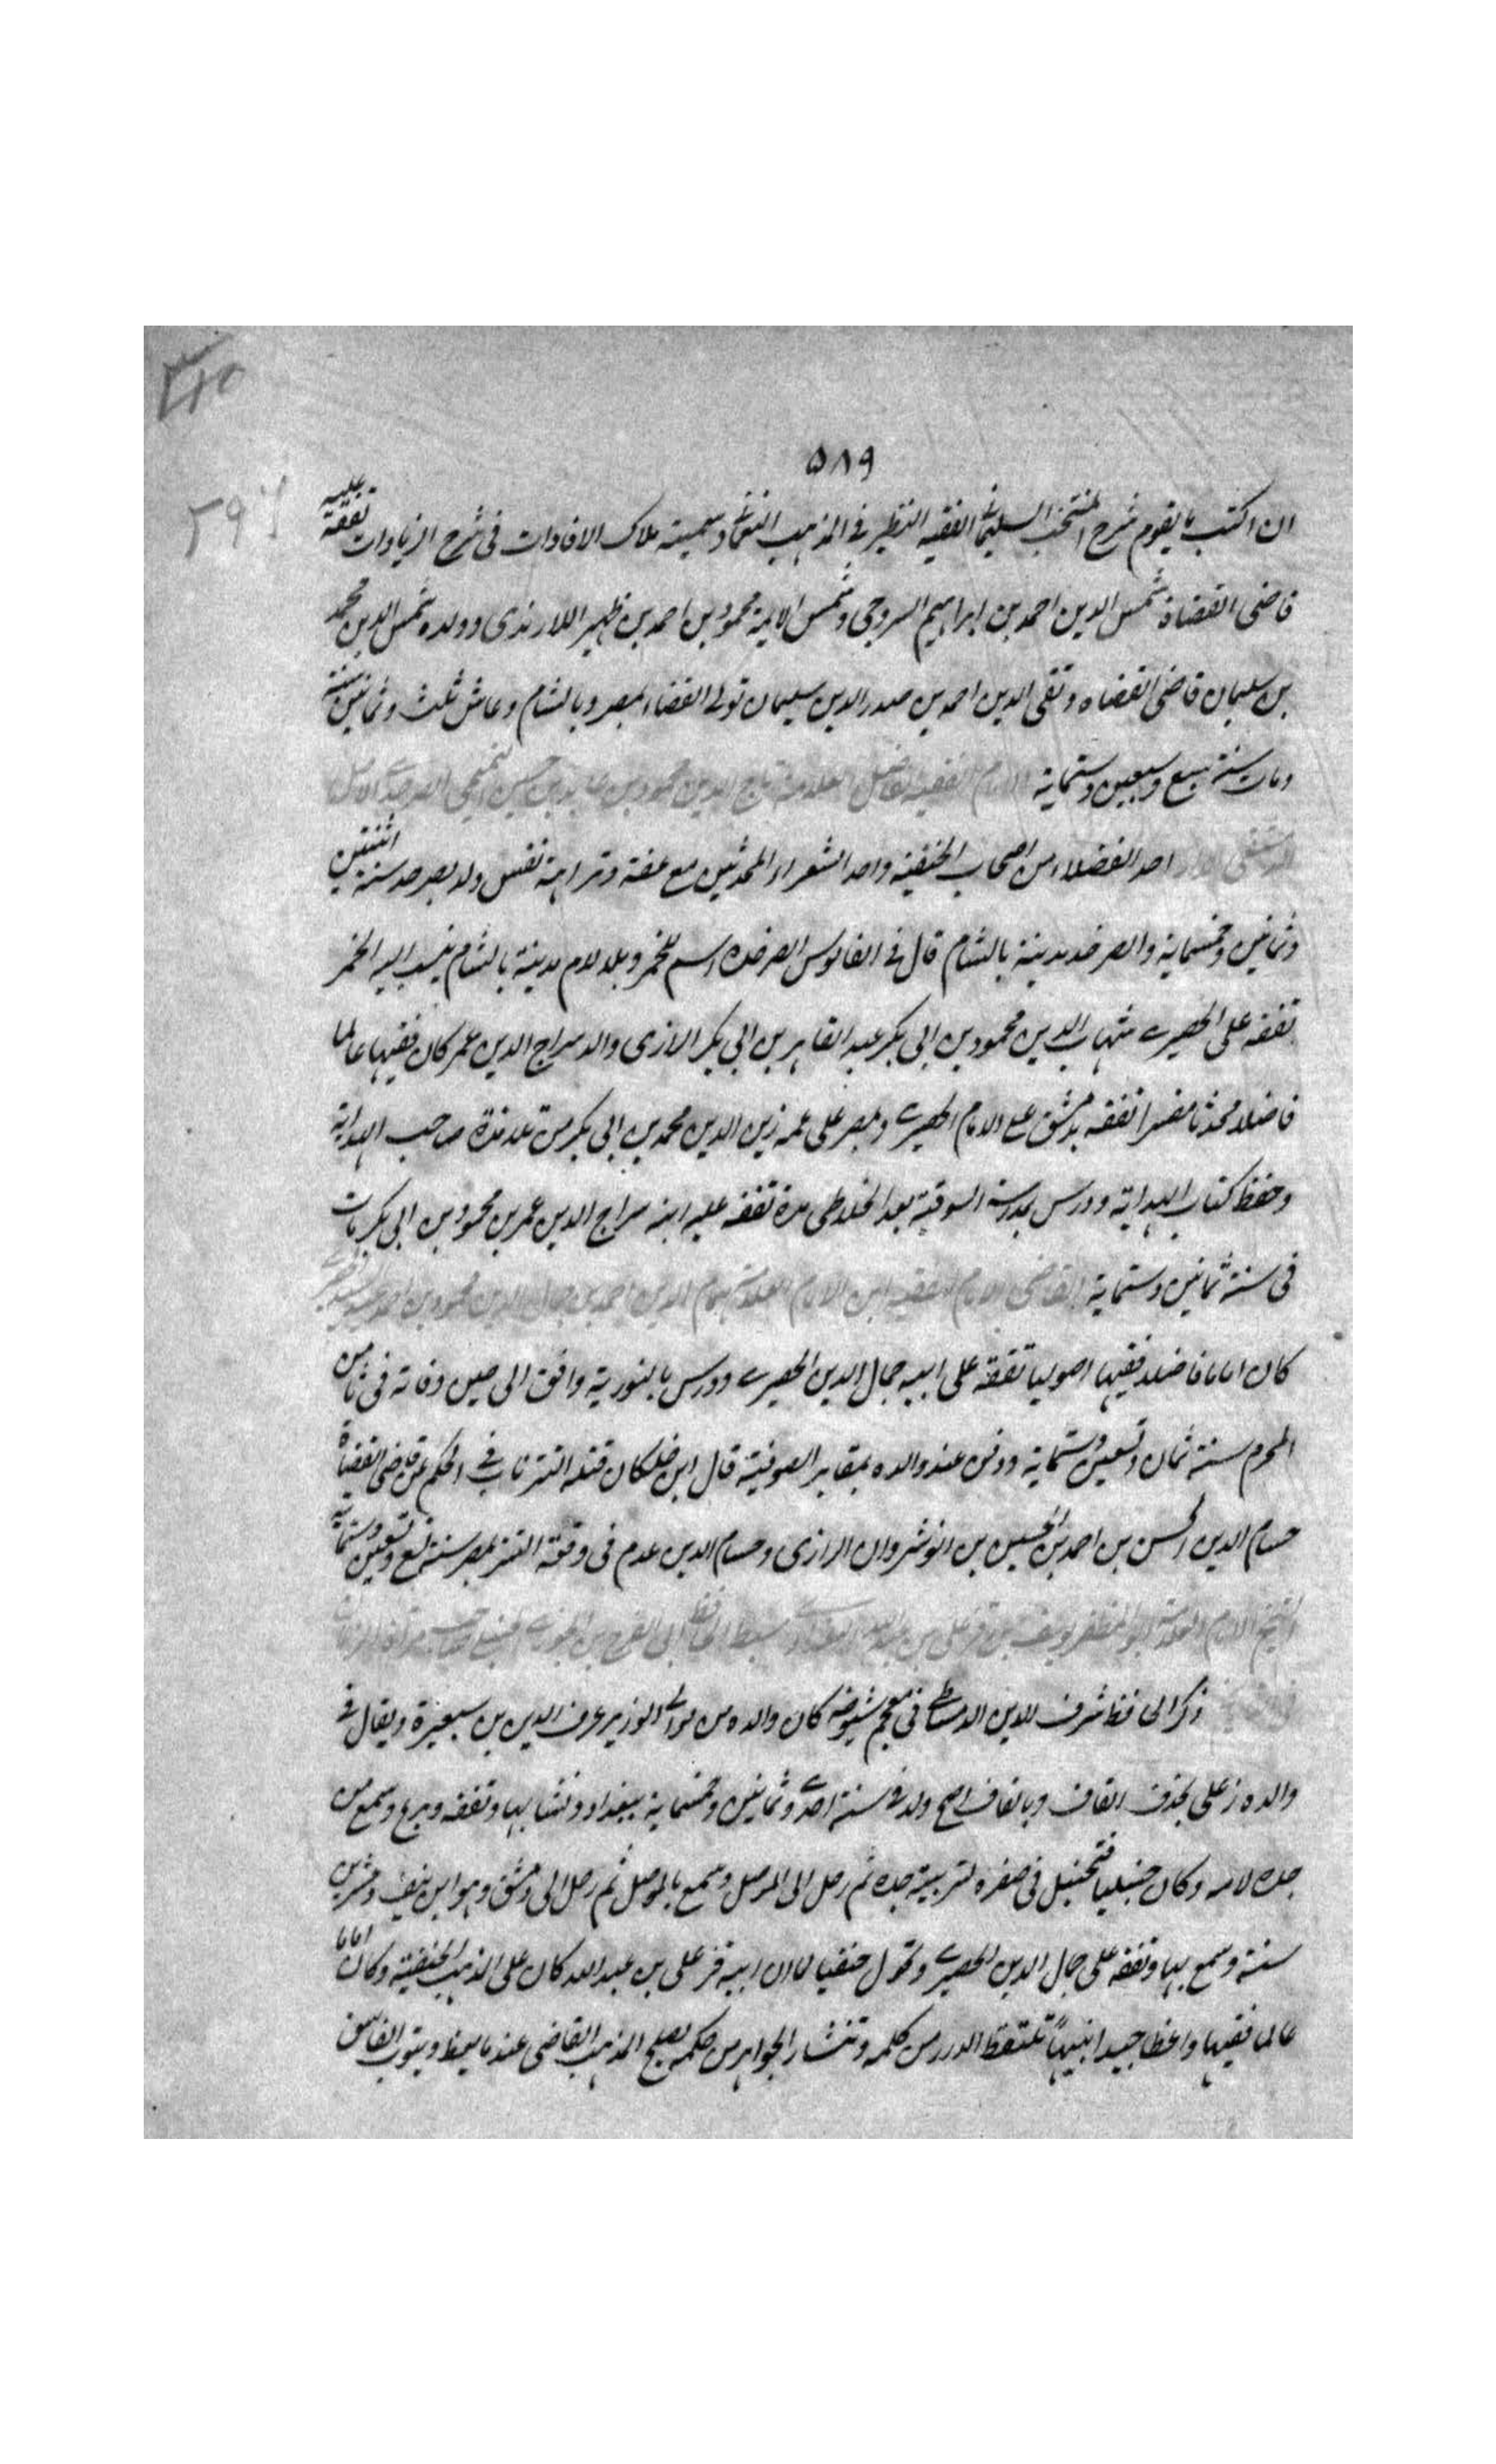 ٥٨٩
ان اكتب ما يقوم شرح المنتخب السليماني الفقيه النظير في المذهب النعماني وسميته ملاك الافادات في شرح الزيادات تفقه عليه
قاضى القضاة شمس الدين احمد بن ابراهيم السروجى وشمس الائمة محمود بن احمد بن ظهير اللارندى وولده شمس الدين محمد
بن سليمان قاضى القضاه وتقى الدين احمد بن صدر الدين سليمان تولى القضاء بمصر وبالشام وعاش ثلث وثمانين سنة
ومات سنة سبع وسبعين وستماية الامام الفقيه الفاضل العلامة تاج الدين محمود بن عابد بن حسين التميمى الصرخدى الاصل
الدمشقى الدار احد الفضلاء من اصحاب الحنفية واحد الشعراء المحدثين مع عفة ونزاهة نفس ولد بصرخد سنة اثنتين
وثمانين وخمسماية والصرخد مدينة بالشام قال في القاموس الصرخد اسم للخمر وبلا لام مدينة بالشام ينسب اليه الخمر
تفقه على الحصيرى شهاب الدين محمود بن ابى بكر عبد القاهر بن ابى بكر الرازى والد سراج الدين عمر كان فقيها عالما
فاضلا محدثا مفسرا تفقه بدمشق على الامام الحصيرى وبمصر على عمه زين الدين محمد بن ابى بكر من تلامذة صاحب الهداية
وحفظ كتاب الهداية ودرس بمدرسة السوفية بعد الخلاطى مدة تفقه عليه ابنه سراج الدين عمر بن محمود بن ابى بكر مات
فى سنة ثمانين وستماية القاضى الامام الفقيه ابن الامام العلامة نظام الدين احمد بن جمال الدين محمود بن احمد
كان اماما فاضلا فقيها اصوليا تفقه على ابيه جمال الدين الحصيرى ودرس بالنورية وافتى الى حين وفاته فى ثامن
المحرم سنة ثمان وتسعين وستماية ودفن عند والده بمقابر الصوفية قال ابن خلكان قتله التتر ناب في الحكم عن قاضى القضاة
حسام الدين الحسن بن احمد بن الحسين بن انوشروان الرازى وحسام الدين عدم فى وقعة التتر بمصر سنة تسع وتسعين وستماية
الشيخ الامام العلامة ابو المظفر يوسف بن قزعلى بن عبد الله البغدادى سبط الحافظ ابى الفرج بن الجوزى الحنبلى صاحب مرآة الزمان
ذكر الحافظ شرف الدين الدمياطى فى معجم شيوخه كان والده من موالى الوزير عون الدين بن هبيرة ويقال فى
والده زعلى بحذف القاف وبالقاف اصح ولد فى سنة احدى وثمانين وخمسماية ببغداد ونشا بها وتفقه وبرع وسمع من
جده لامه وكان حنبليا فتحنبل فى صغره لتربية جده ثم رحل الى الموصل وسمع بالموصل ثم رحل الى دمشق وهو ابن نيف وعشرين
سنة وسمع بها وتفقه على جمال الدين الحصيرى وتحول حنفيا لما ان ابيه قزعلى بن عبد الله كان على المذهب الحنفية وكان اماما
عالما فقيها واعظا جيدا نبيها تلتقط الدرر من كلمه وتتناثر الجواهر من حكمه يصلح المذنب القاصى عند ما يعظ ويتوب الفاسق